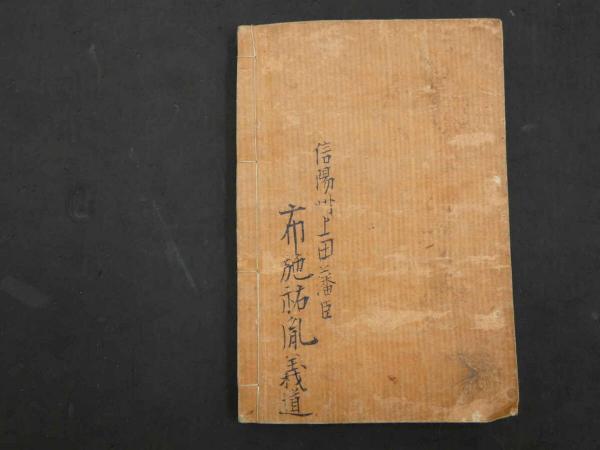 信陽州上田藩臣
布施祐胤義道